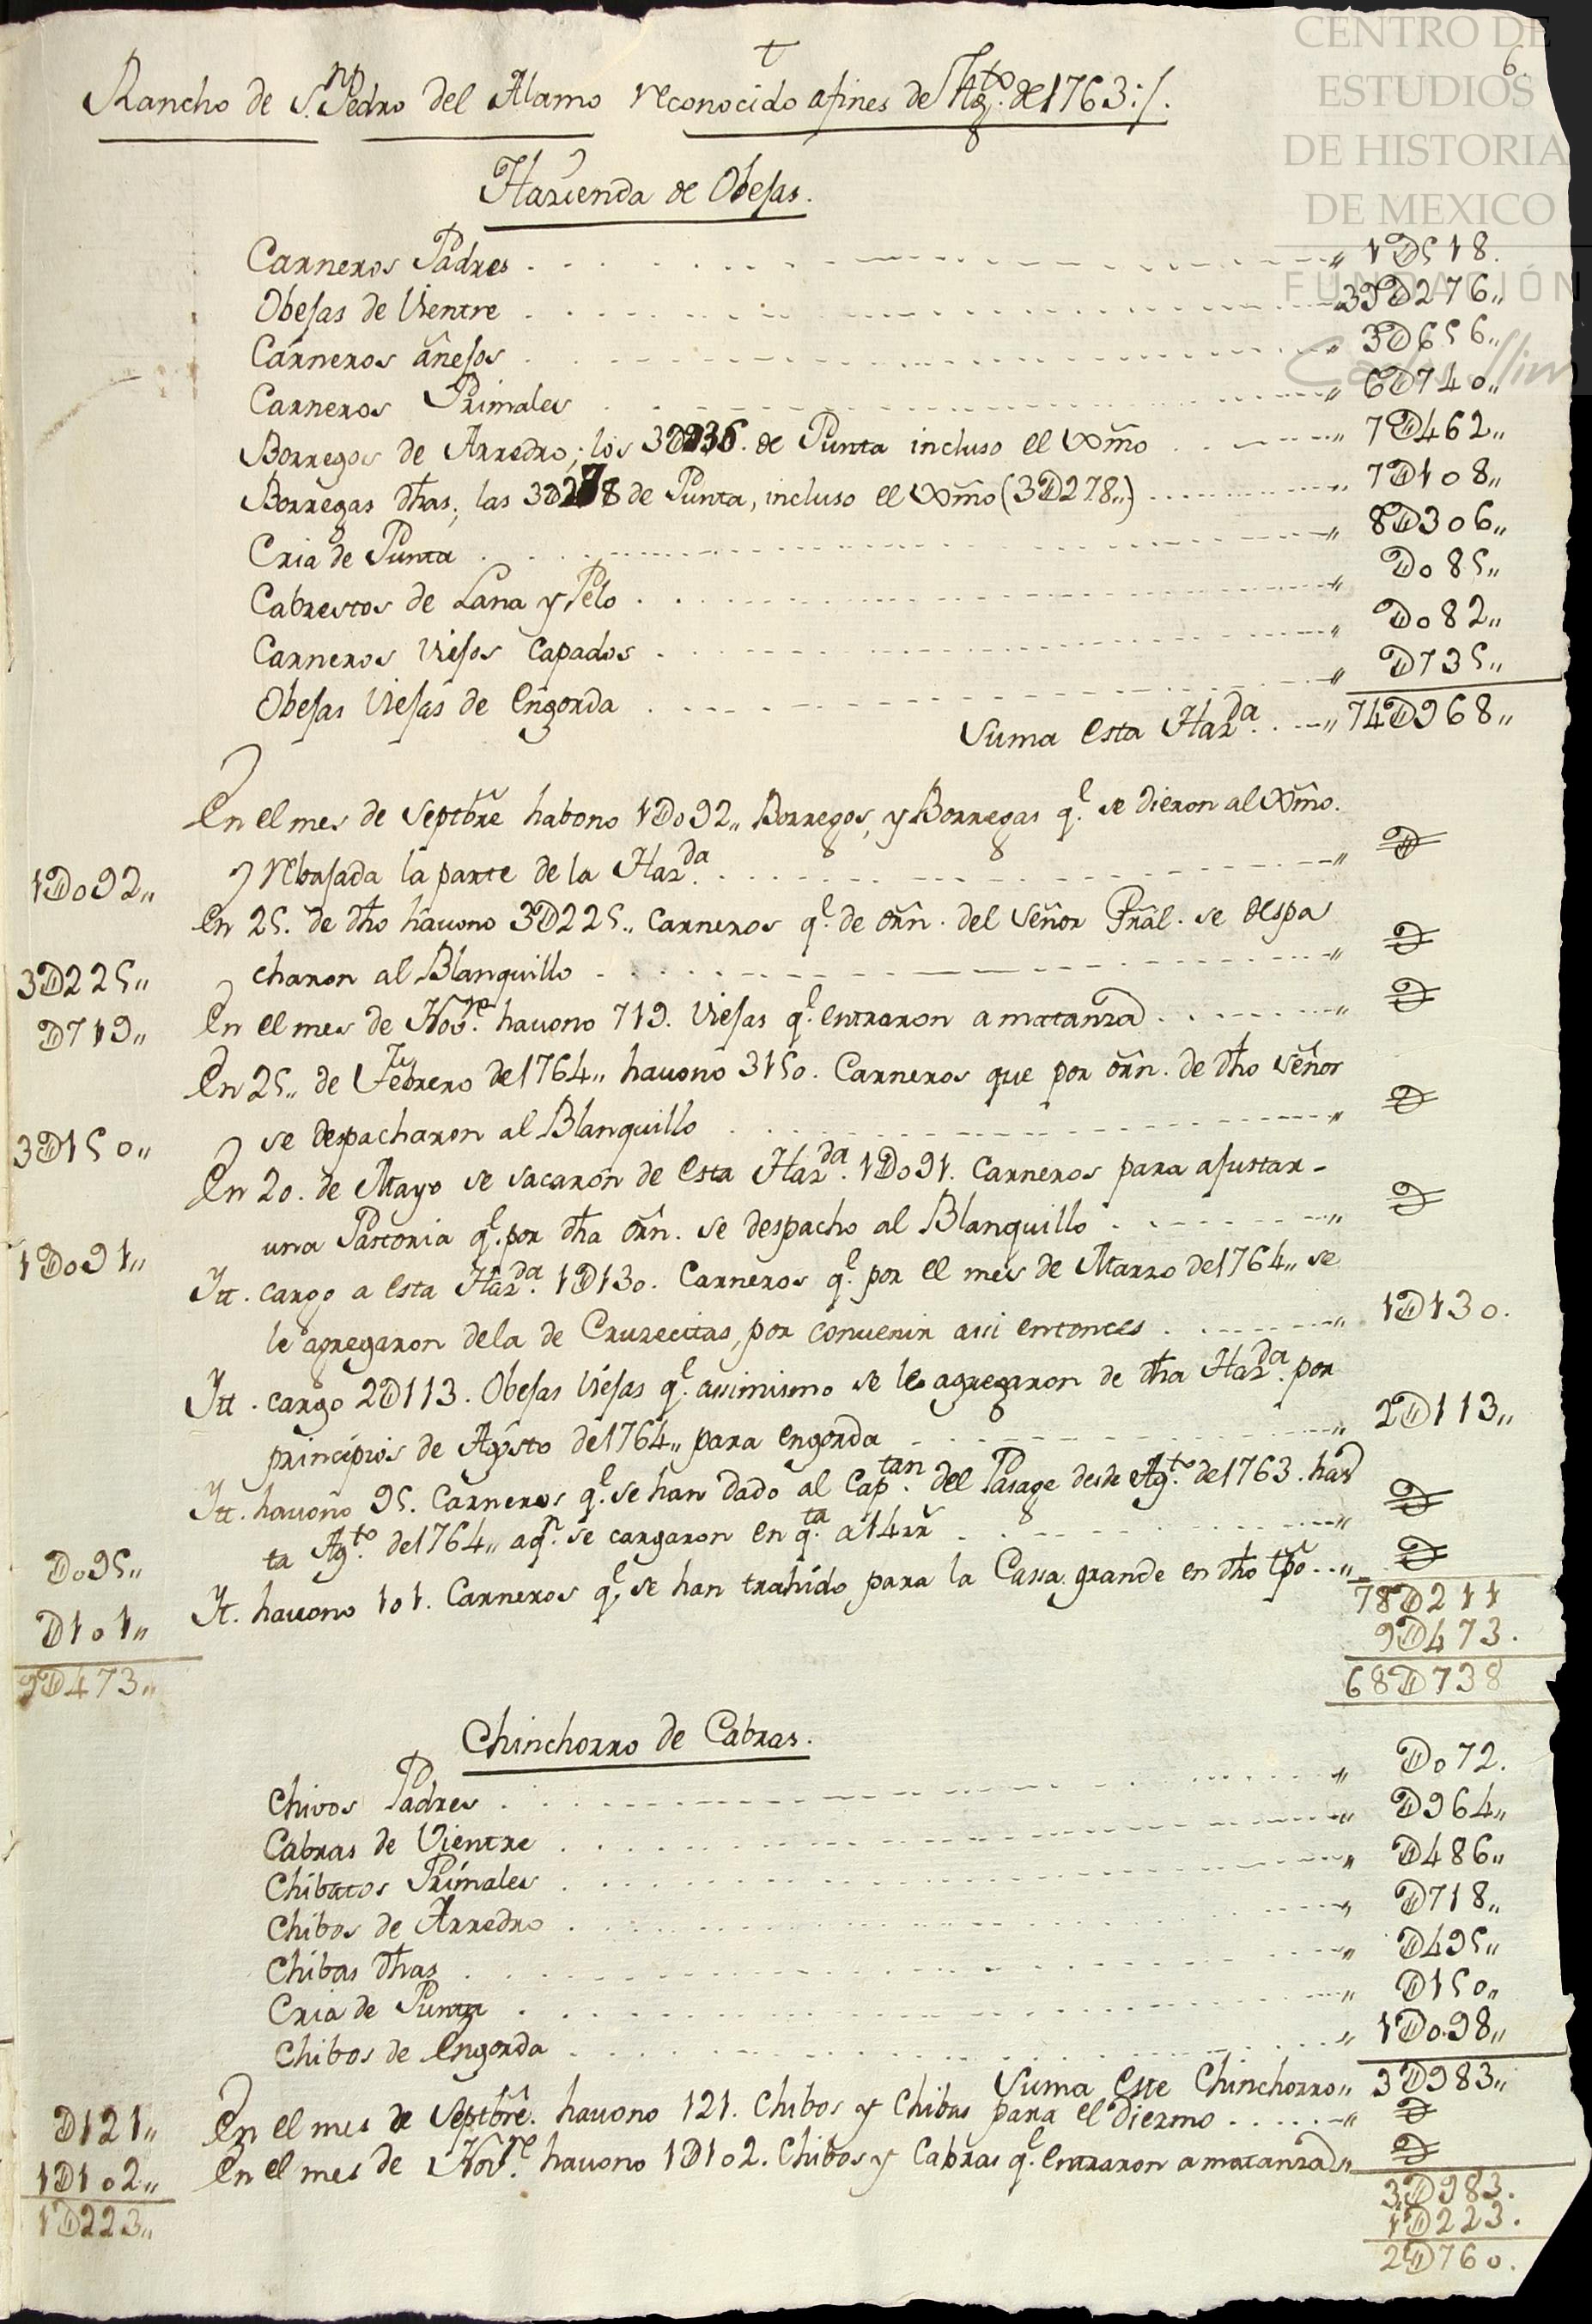 †
6.
Rancho de S.n Pedro del Alamo reconocido a fines de Ag.to de 1763:/.
Hazienda de Obejas.
Carneros Padres . . . " 1D518.
Obejas de Vientre . . . " 39D276"
Carneros añejos . . . " 3D656"
Carneros Primales . . . " 6D740"
Borregos de Arredro; los 3D236. de Punta incluso el Dxm̃o . . . " 7D462"
Borregas dhas; las 3D278 de Punta, incluso el Dxm̃o (3D278") . . . " 7D108"
Cria de Punta . . . " 8D306"
Cabrestos de Lana y Pelo . . . " D085"
Carneros Viejos Capados . . . " D082"
Obejas Viejas de Engorda . . . " D735"
Suma esta Haz.da . . . " 74D968"
En el mes de Septbre habono 1D092" Borregos, y Borregas q.e se dieron al Dxm̃o.
1D092" rebajada la parte de la Haz.da . . . " D
En 25. de dho hauono 3D225" Carneros q.e de orn. del Señor Gral. se despa
3D225" charon al Blanquillo . . . " D
D719" En el mes de Nov.re hauono 719. Viejas q.e entraron a matanza . . . " D
En 25" de Febrero de 1764" hauono 3150. Carneros que por orn. de dho Señor
3D150" se despacharon al Blanquillo . . . " D
En 20. de Mayo se sacaron de esta Haz.da 1D091. Carneros para ajustar-
1D091" una Pastoria q.e por dha orn. se despacho al Blanquillo . . . " D
Itt. cargo a esta Haz.da 1D130. Carneros q.e por el mes de Marzo de 1764" se
le agregaron de la de Cruzecitas, por convenir assi entonces . . . " 1D130.
Itt. cargo 2D113. Obejas Viejas q.e assimismo se le agregaron de dha Haz.da por
principios de Agosto de 1764" para engorda . . . " 2D113"
Itt. hauono 95. Carneros q.e se han dado al Cap.tan del Pasage desde Ag.to de 1763. has
D095" ta Ag.to de 1764" a q.n se cargaron en q.ta a 14 rr . . . " D
D101" It. hauono 101. Carneros q.e se han trahido para la Cassa grande en dho tpo . . " D
78D211
9D473.
9D473" 68D738
Chinchorro de Cabras.
Chivos Padres . . . " D072.
Cabras de Vientre . . . " D964"
Chibatos Primales . . . " D486"
Chibos de Arredro . . . " D718"
Chibas dhas . . . " D495"
Cria de Punta . . . " D150"
Chibos de Engorda . . . " 1D098"
Suma este Chinchorro " 3D983"
D121" En el mes de Septbre. hauono 121. Chibos y Chibas para el Diezmo . . . " D
1D102" En el mes de Nov.re hauono 1D102. Chibos y Cabras q.e entraron a matanza " D
1D223" 3D983.
1D223.
2D760.
CENTRO DE
ESTUDIOS
DE HISTORIA
DE MEXICO
FUNDACIÓN
Carlos Slim